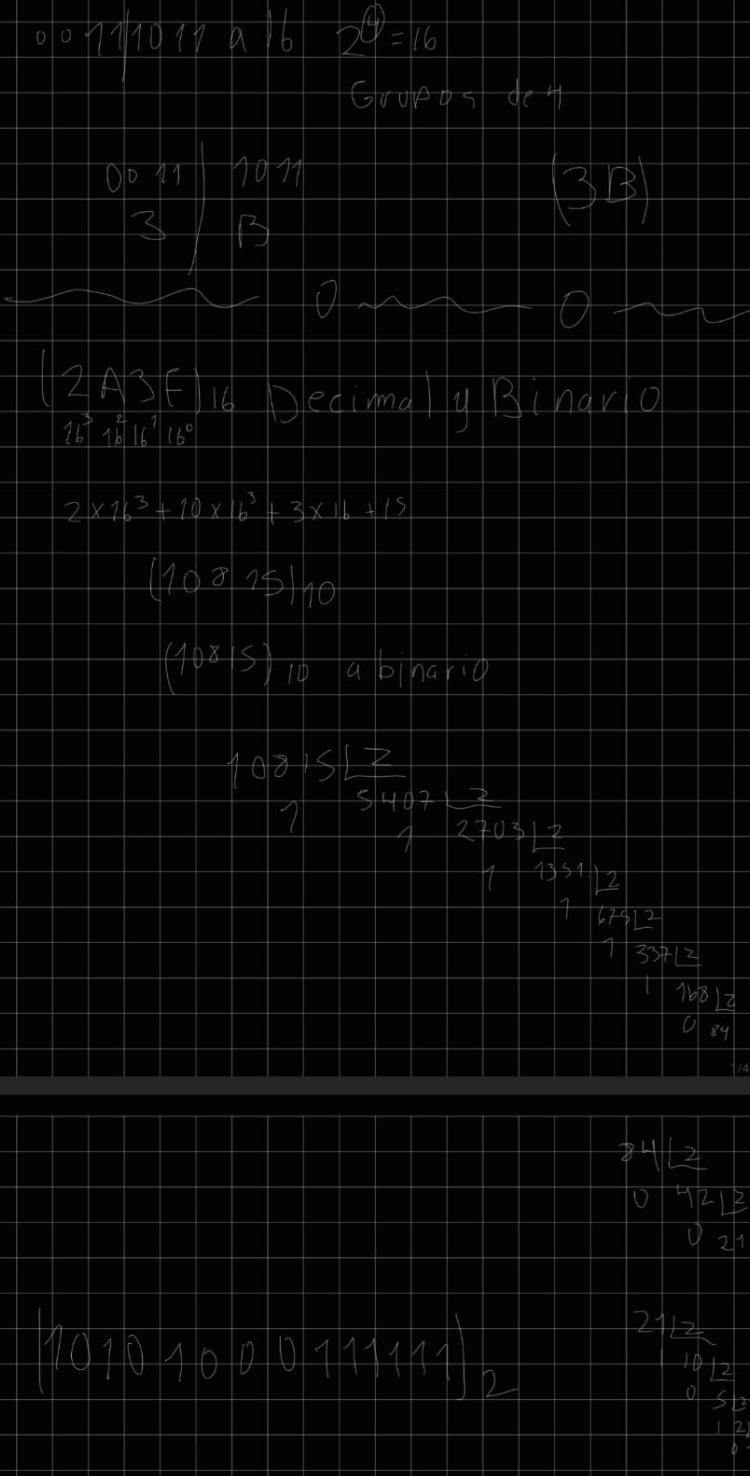 001110 11 a 16 2^4=16
Grupos de 4
0011 | 1011
3 | B (3B)
0 0
(2A3F)16 Decimal y Binario
16^3 16^2 16^1 16^0
2×16^3+10×16^3+3×16+15
(10815)10
(10815)10 a binario
10815 2
1 5407 2
1 2703 2
1 1351 2
1 675 2
1 337 2
1 168 2
0 84
1/4
84 2
0 42 2
0 21
21 2
1 10 2
0 5 2
1 2
0
(10101000111111)2